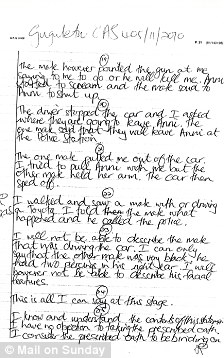 Gugulethu CAS 405/11/2010
The male however pointed the gun at me
saying to me to go or he will kill me. Anni
started to scream and the male said to
Anni to shut up.
The driver stopped the car and I asked
where they are going to leave Anni. The
one male said that they will leave Anni at
the Police Station.
The one male pulled me out of the car.
I tried to pull Anni with me but the
other male held her arm. The car then
sped off.
I walked and saw a male with or driving
a Toyota. I told the male what
happened and he called the police.
I will not be able to describe the male
that was driving the car. I can only
say that the other male was very black he
had two piercings in his right ear. I will
however not be able to describe his facial
features.
This is all I can say at this stage.
I know and understand the contents of this statement
I have no objection to taking the prescribed oath
I consider the prescribed oath to be binding on
© Mail on Sunday